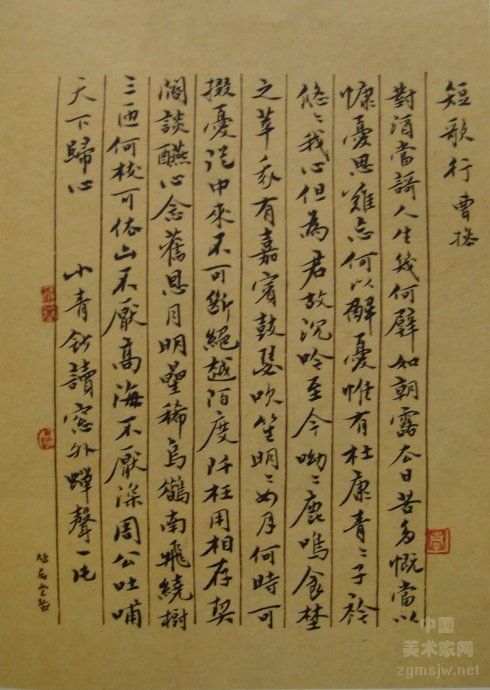 短歌行 曹操
對酒當謌人生幾何譬如朝露去日苦多慨當以
慷憂思難忘何以解憂惟有杜康青〻子衿
悠〻我心但為君故沉吟至今呦〻鹿鳴食埜
之苹我有嘉賓鼓瑟吹笙明〻如月何時可
掇憂從中來不可斷絕越陌度阡枉用相存契
闊談醼心念舊恩月明星稀烏鵲南飛繞樹
三匝何枝可依山不厭高海不厭深周公吐哺
天下歸心 小青鈔讀窓外蟬聲一片
中国
美术家网
zgmsjw.net